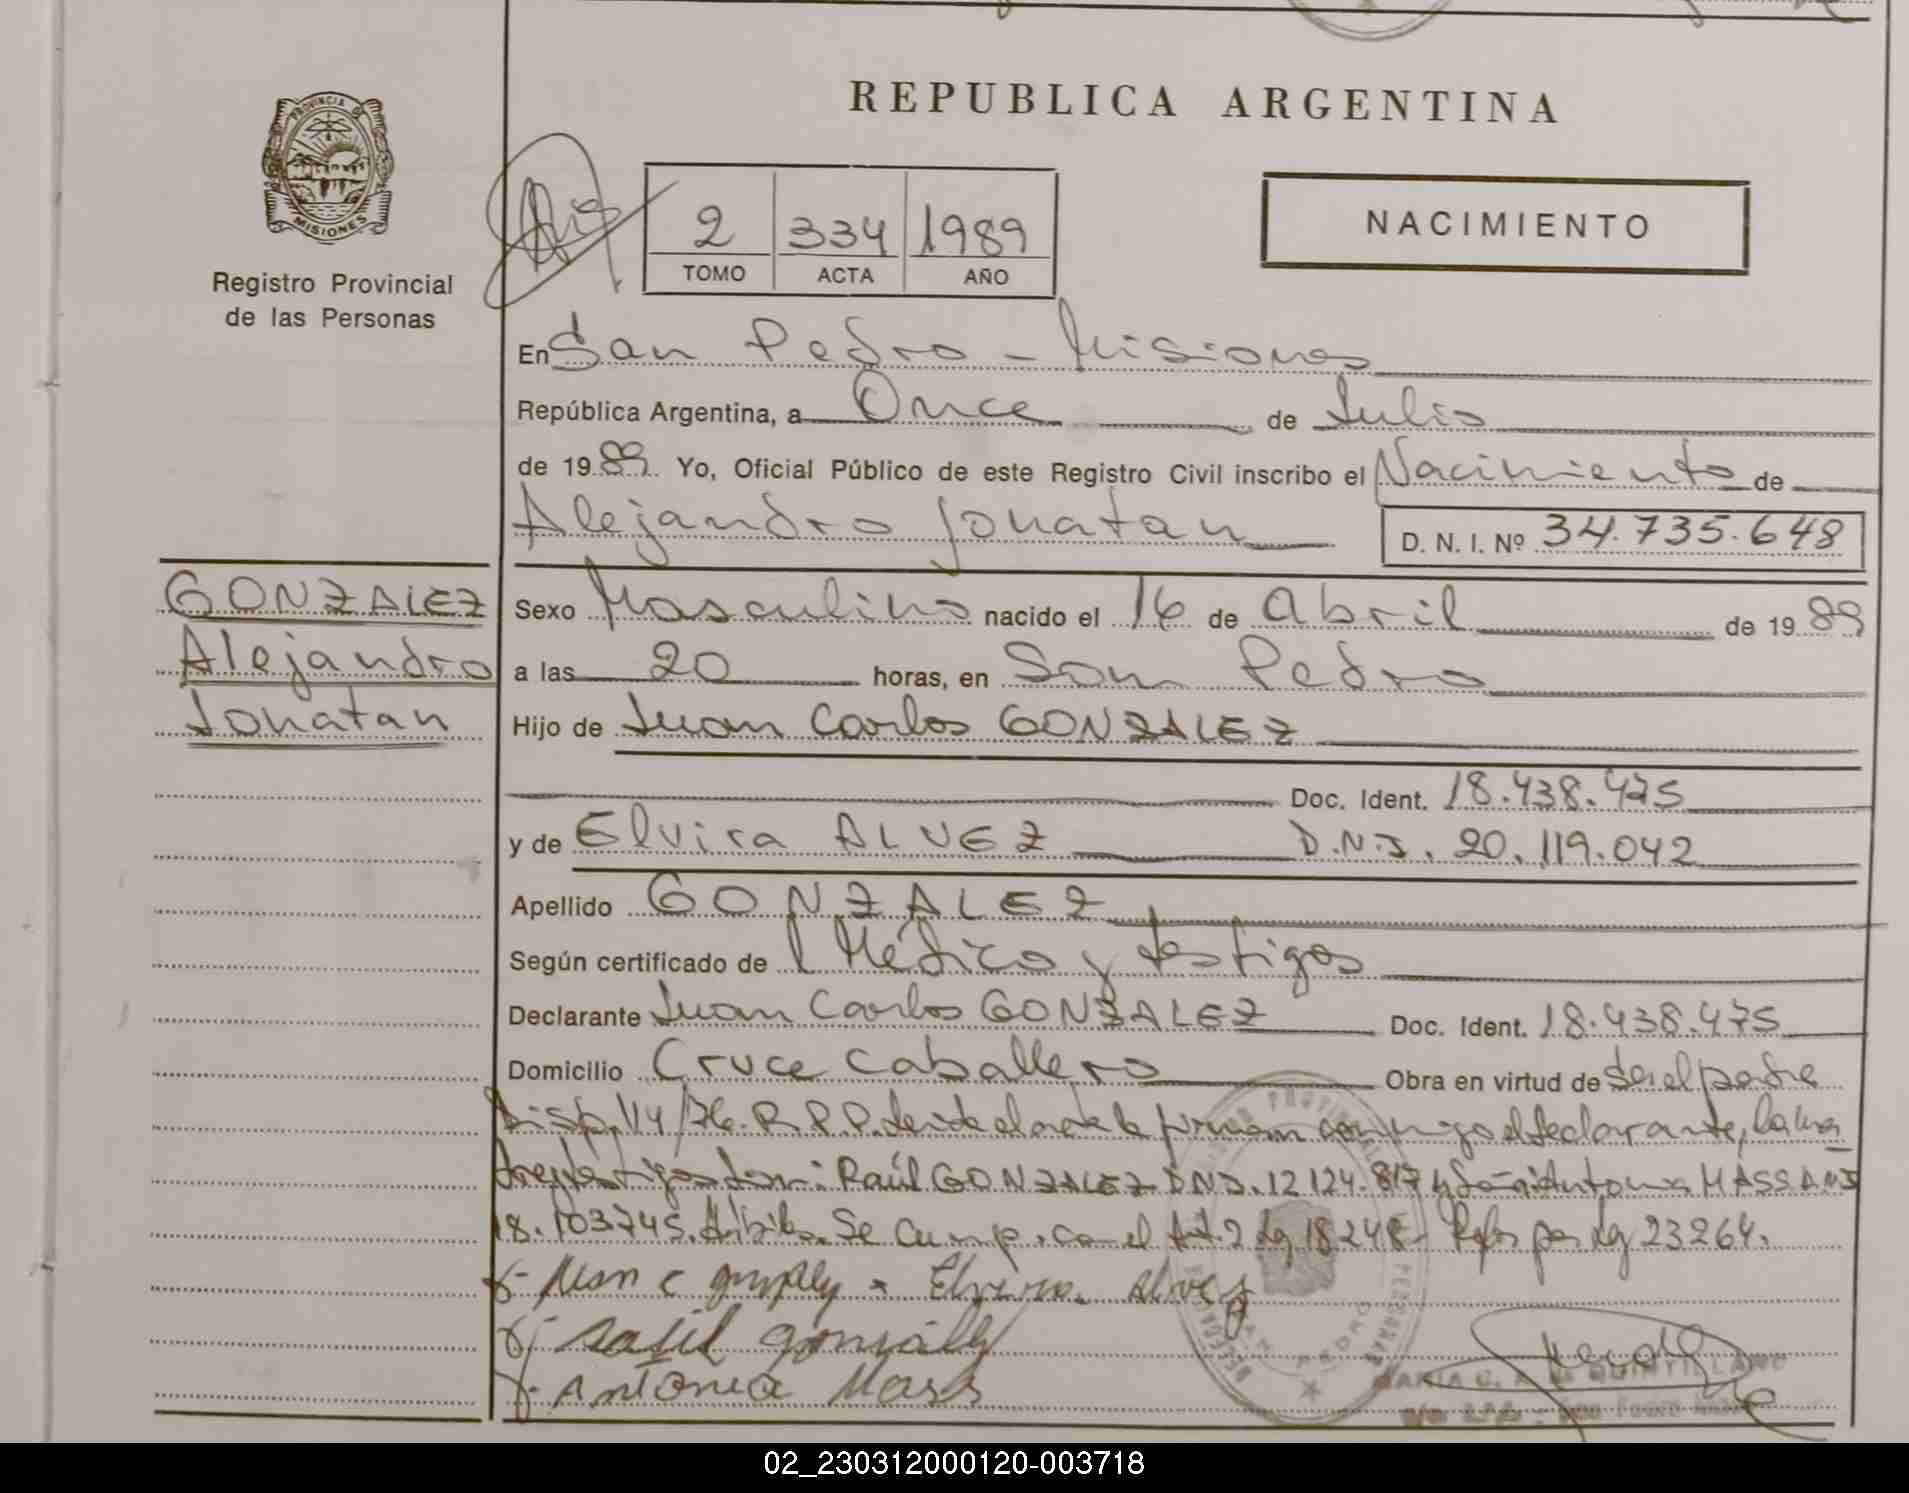 REPUBLICA ARGENTINA
PROVINCIA DE
MISIONES
Registro Provincial
de las Personas
2 334 1989
TOMO ACTA AÑO
NACIMIENTO
En San Pedro - Misiones
República Argentina, a Once de Julio
de 19 89 Yo, Oficial Público de este Registro Civil inscribo el Nacimiento de
Alejandro Jonatan D. N. I. Nº 34.735.648
GONZALEZ
Alejandro
Jonatan
Sexo Masculino nacido el 16 de Abril de 19 89
a las 20 horas, en San Pedro
Hijo de Juan Carlos GONZALEZ
Doc. Ident. 18.438.475
y de Elvira ALVEZ D.N.I. 20.119.042
Apellido GONZALEZ
Según certificado de l Médico y testigos
Declarante Juan Carlos GONZALEZ Doc. Ident. 18.438.475
Domicilio Cruce Caballero Obra en virtud de Ser el padre
Disp. 114/76. R.P.P. Leida el acta la firman conmigo el declarante, la ma
dre y testigos Son: Raúl GONZALEZ DNI. 12.124.817 y Antonia MASS DNI
18.103745. Se cump. con el Art. 2 Ley 18248 por Ley 23264.
Juan C Elvira Alvez
Raúl
Antonia Mass
MARIA C. A. de QUINTILLANO
02_230312000120-003718